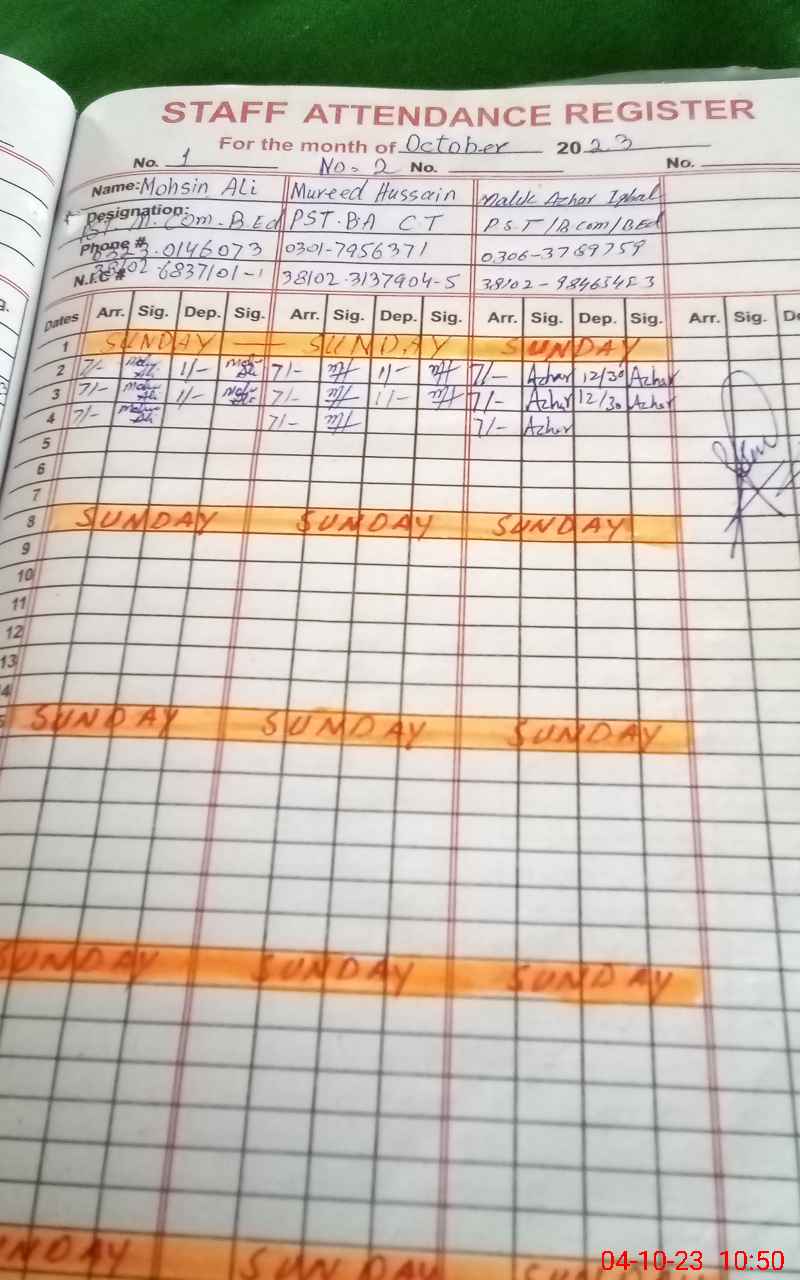 STAFF ATTENDANCE REGISTER
For the month of October 2023
No. 1 No. 2 No. No.
Name: Mohsin Ali Mureed Hussain Malik Azhar Iqbal
Designation: PST. M.Com. B.Ed PST. B.A C T P.S.T/B.com/B.Ed
Phone # 0323.0146073 0301-7956371 0306-3789759
N.I.C # 38102 6837101-1 38102.3137904-5 38102-
Dates Arr. Sig. Dep. Sig. Arr. Sig. Dep. Sig. Arr. Sig. Dep. Sig. Arr. Sig. De
1 SUNDAY — SUNDAY SUNDAY
2 7/- 1/- 7/- 1/- 7/- Azhar 12/30 Azhar
3 7/- 1/- 7/- 1/- 7/- Azhar 12/30 Azhar
4 7/- 7/- 7/- Azhar
5
6
7
8 SUNDAY SUNDAY SUNDAY
9
10
11
12
13
4
5 SUNDAY SUNDAY SUNDAY
SUNDAY SUNDAY SUNDAY
NDAY SUNDAY SUNDAY
04-10-23 10:50